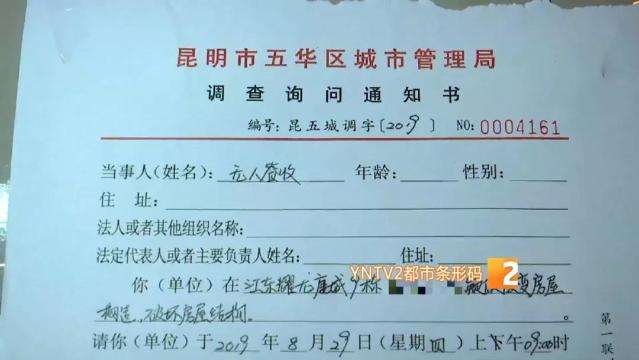 昆明市五华区城市管理局
调查询问通知书
编号：昆五城调字〔2019〕 NO: 0004161
当事人(姓名)：无人签收 年龄： 性别：
住 址：
法人或者其他组织名称：
法定代表人或者主要负责人姓名： 住址：
YNTV2都市条形码 2
你（单位）在江东耀龙康城 房屋
构造，破坏房屋结构。
第一联
请你(单位)于2019年8月29日(星期四)上下午09:00时